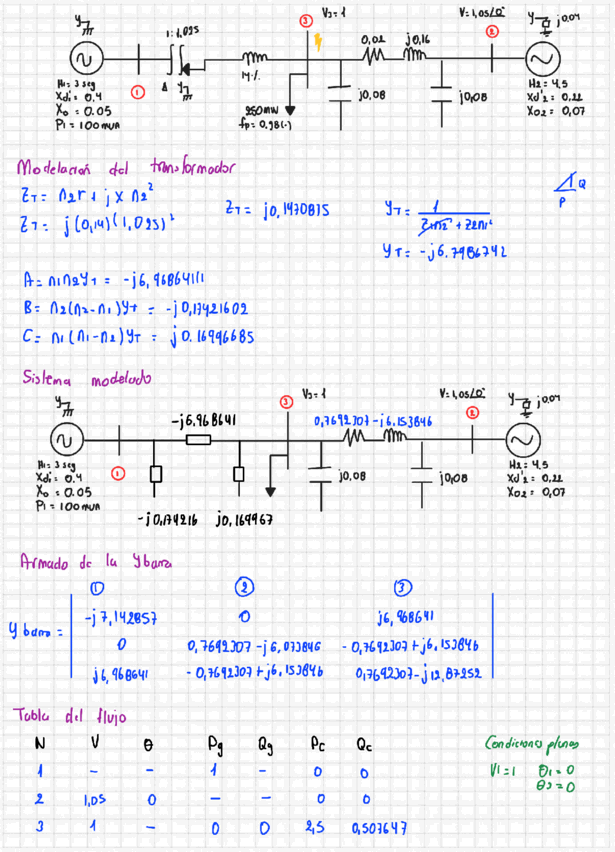 V3=1
1:1,025
j0,04
V=1,05/0°
0,02
j0,16
14%
Δ
j0,08
j0,08
250mw
fp=0,98(-)
H1=3seg
Xd'i=0.4
Xo=0.05
P1=100mva
H2=4.5
Xd'2=0,22
Xo2=0,07
1
2
3
Modelación del transformador
ZT= n2r+jxn2²
ZT= j(0,14)(1,025)²
ZT= j0,1470875
YT= 1 / Z1n2²+Z2n1²
YT= -j6.7986742
P
Q
A= n1n2YT = -j6,96864111
B= n2(n2-n1)Yt = -j0,17421602
C= n1(n1-n2)YT = j0.16996685
Sistema modelado
V3=1
V=1,05/0°
j0,04
-j6.968641
0,7692307-j6,153846
j0,08
j0,08
-j0,174216
j0,169967
H1=3seg
Xd'i=0.4
Xo=0.05
P1=100mva
H2=4.5
Xd'2=0,22
Xo2=0,07
1
2
3
Armado de la Ybarra
1 2 3
Y barra =
-j7,142857 0 j6,968641
0 0,7692307-j6,073846 -0,7692307+j6,153846
j6,968641 -0,7692307+j6,153846 0,7692307-j12,87252
Tabla del flujo
N V θ Pg Qg Pc Qc
1 - - 1 - 0 0
2 1,05 0 - - 0 0
3 1 - 0 0 2,5 0,507647
Condiciones planas
V1=1 θ1=0
θ3=0